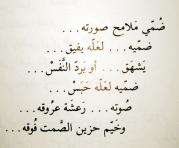 ضُمّي مَلامِح صورته...
ضمّيه ... لعلّه يفيق...
يَشهَق ... أو يَردّ النَّفَسْ...
ضميه لعلّه حَبَسْ ...
صُوته ... رَعشة عرُوقه...
وخَيّم حزين الصَّمت فُوقه...